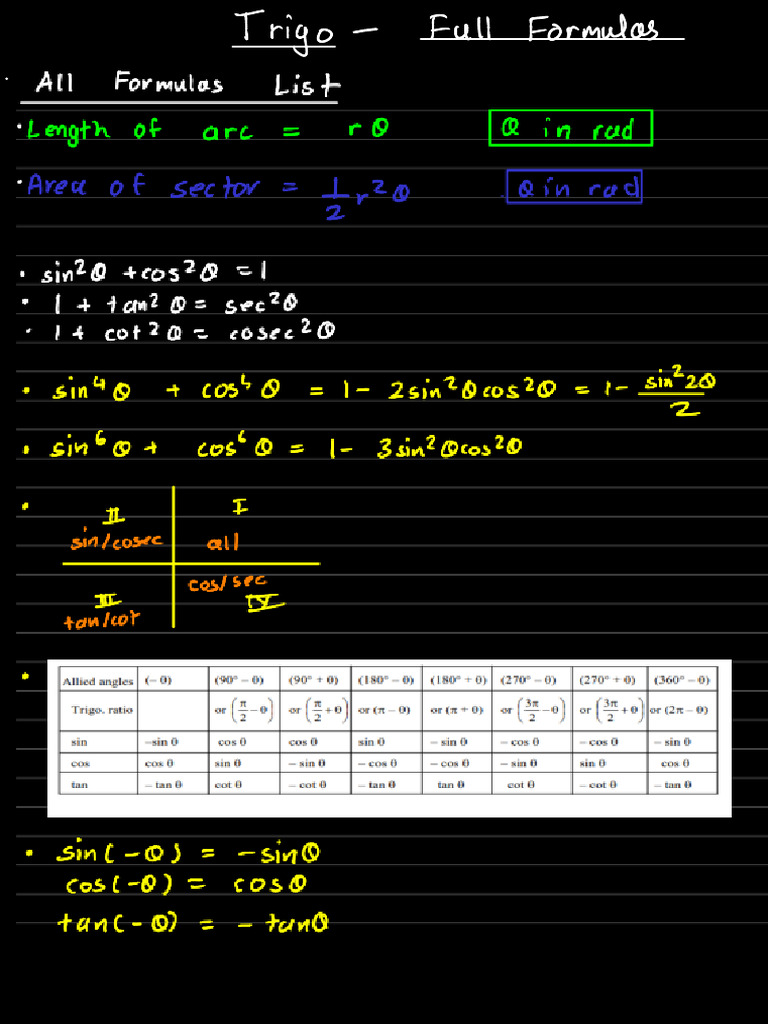 Trigo - Full Formulas
All Formulas List
Length of arc = rθ θ in rad
Area of sector = 1/2 r²θ θ in rad
sin²θ + cos²θ = 1
1 + tan²θ = sec²θ
1 + cot²θ = cosec²θ
sin⁴θ + cos⁴θ = 1 - 2sin²θcos²θ = 1 - sin²2θ/2
sin⁶θ + cos⁶θ = 1 - 3sin²θcos²θ
II I
sin/cosec all
cos/sec
III IV
tan/cot
Allied angles (−θ) (90° − θ) (90° + θ) (180° − θ) (180° + θ) (270° − θ) (270° + θ) (360° − θ)
Trigo. ratio or (π/2 − θ) or (π/2 + θ) or (π − θ) or (π + θ) or (3π/2 − θ) or (3π/2 + θ) or (2π − θ)
sin −sin θ cos θ cos θ sin θ − sin θ − cos θ − cos θ − sin θ
cos cos θ sin θ − sin θ − cos θ − cos θ − sin θ sin θ cos θ
tan − tan θ cot θ − cot θ − tan θ tan θ cot θ − cot θ − tan θ
sin(-θ) = -sinθ
cos(-θ) = cosθ
tan(-θ) = - tanθ